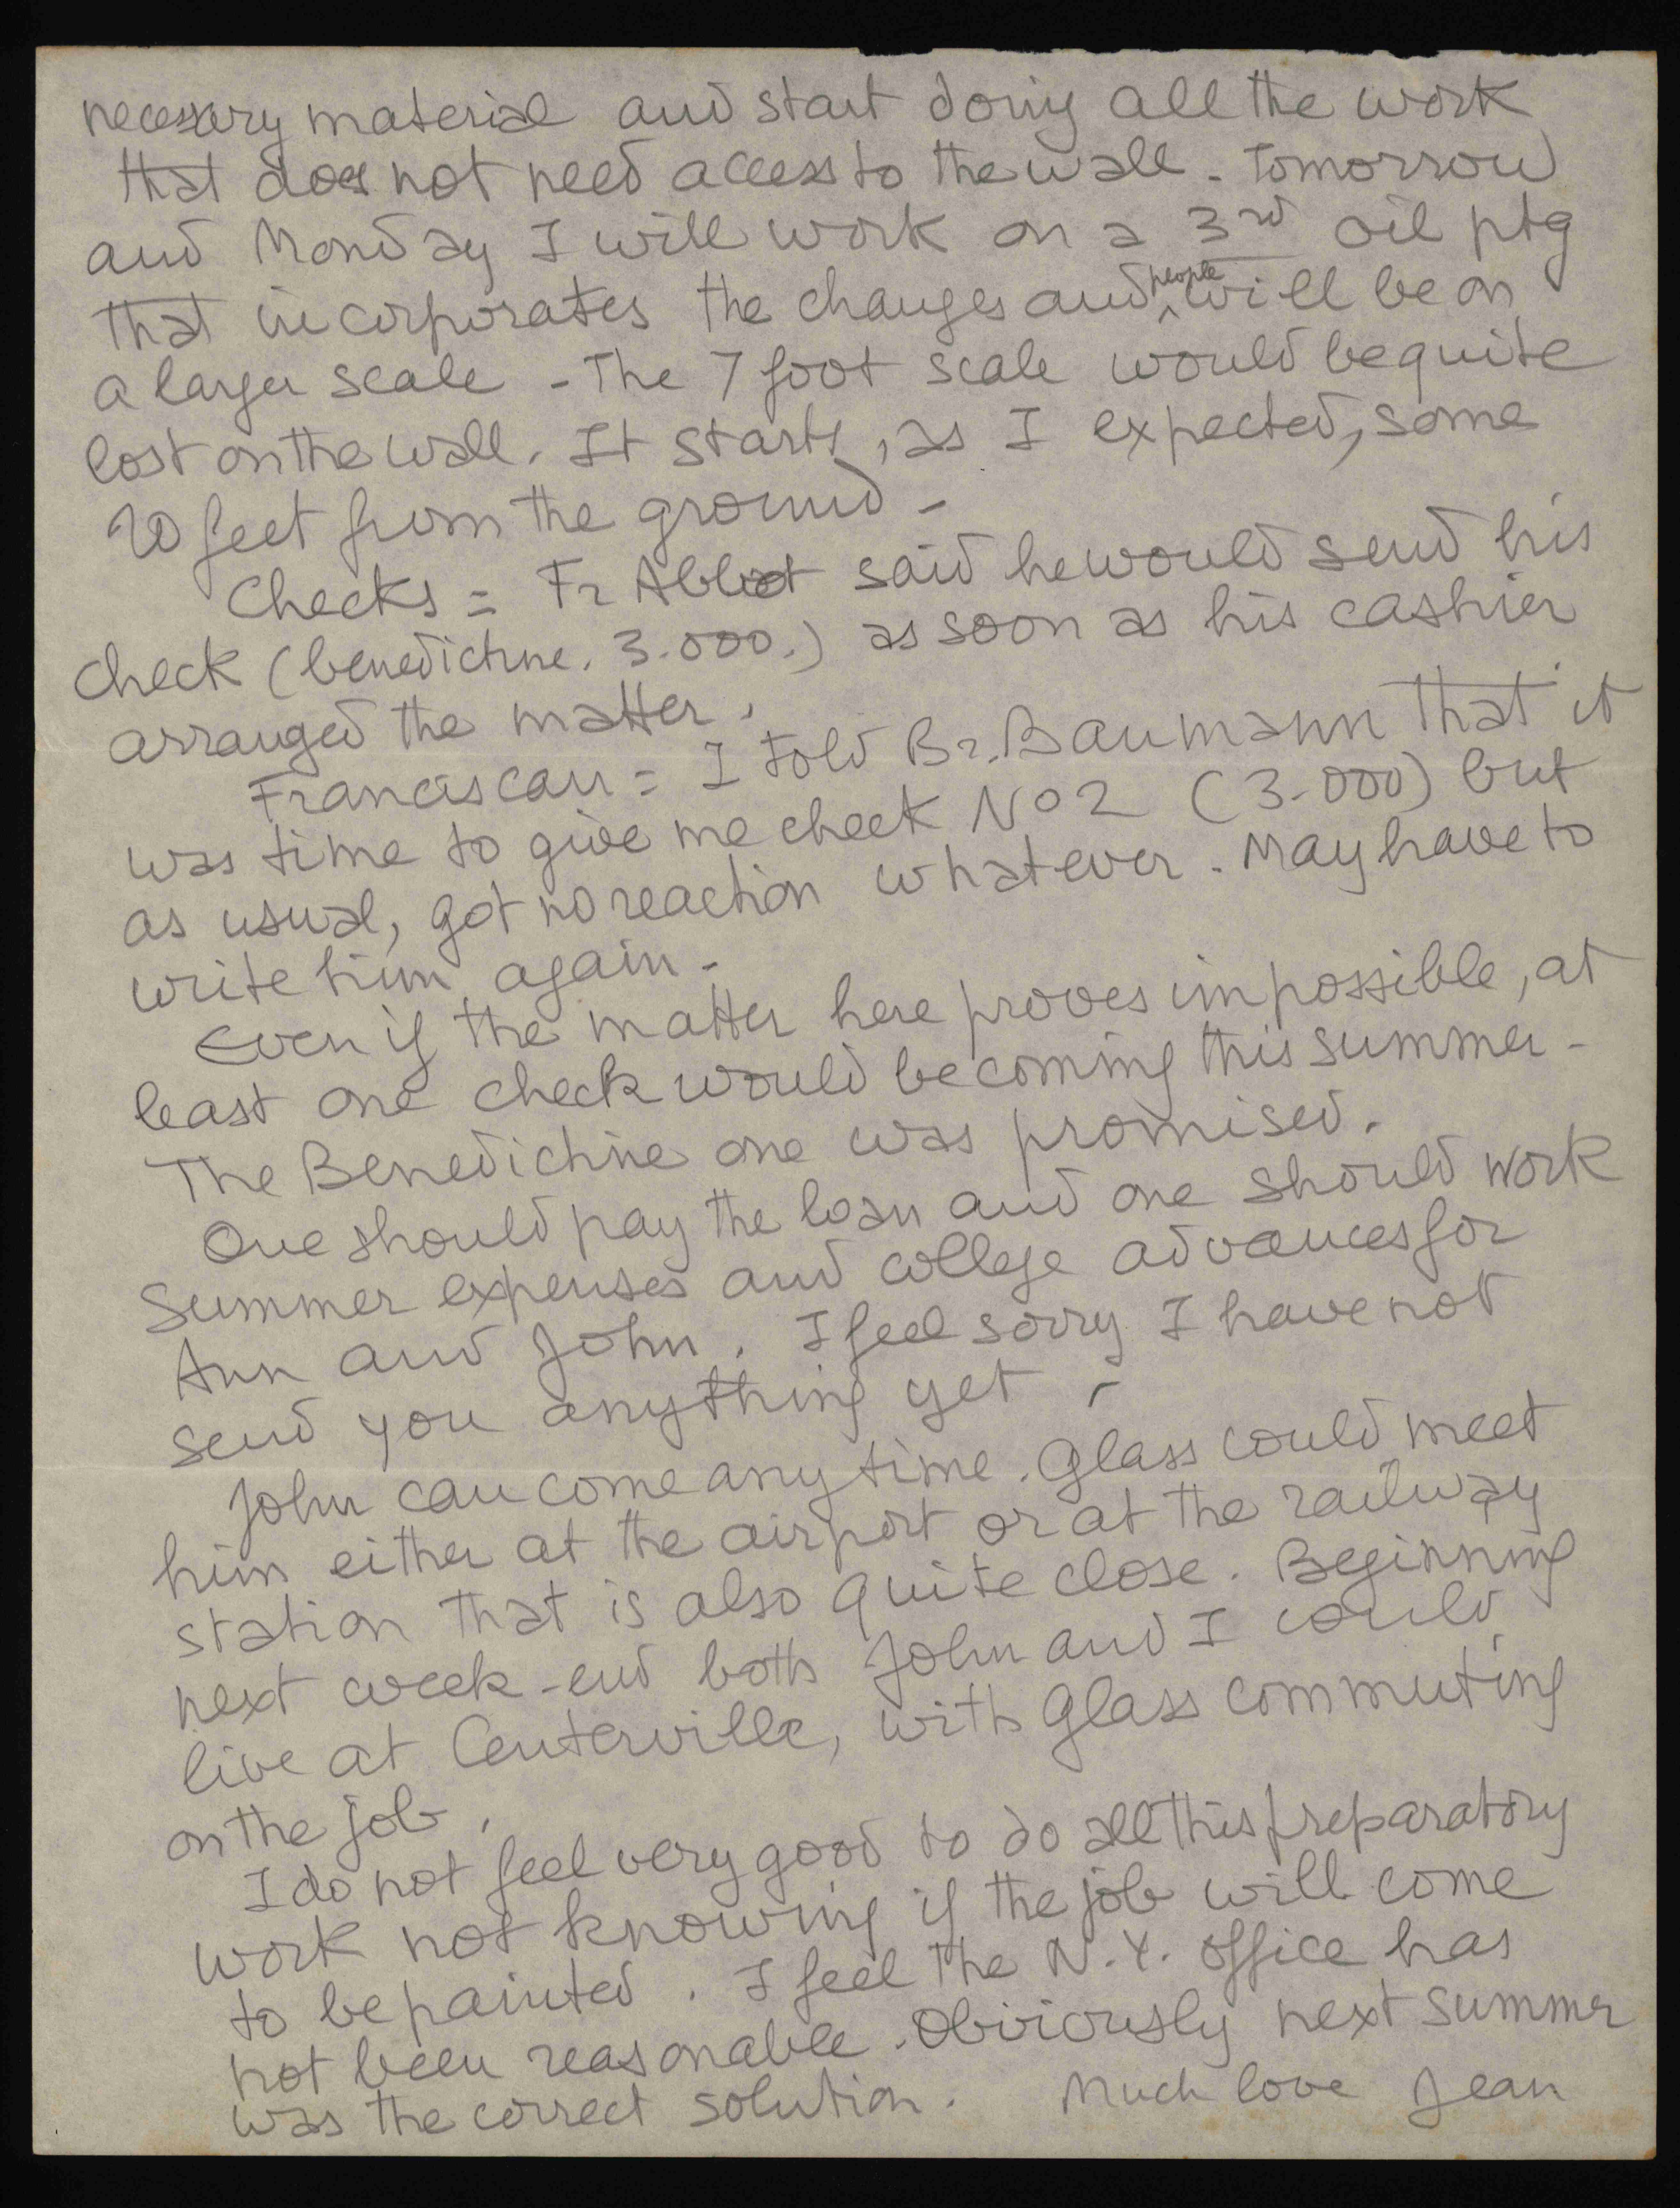 necessary material and start doing all the work
that does not need access to the wall - tomorrow
and Monday I will work on a 3rd oil ptg
that incorporates the changes and people will be on
a larger scale - The 7 foot scale would be quite
lost on the wall. It starts, as I expected, some
20 feet from the ground -
Checks = Fr Abbot said he would send his
check (benedictine. 3.000.) as soon as his cashier
arranged the matter.
Franciscan = I told Br. Baumann that it
was time to give me check No 2 (3.000) but
as usual, got no reaction whatever. May have to
write him again -
Even if the matter here proves impossible, at
least one check would be coming this summer -
The Benedictine one was promised.
One should pay the loan and one should work
Summer expenses and college advances for
Ann and John. I feel sorry I have not
send you anything yet -
John can come any time. Glass could meet
him either at the airport or at the railway
station that is also quite close. Beginning
next week-end both John and I could
live at Centerville, with Glass commuting
on the job.
I do not feel very good to do all this preparatory
work not knowing if the job will come
to be painted. I feel the N.Y. office has
not been reasonable. Obviously next summer
was the correct solution. Much love Jean